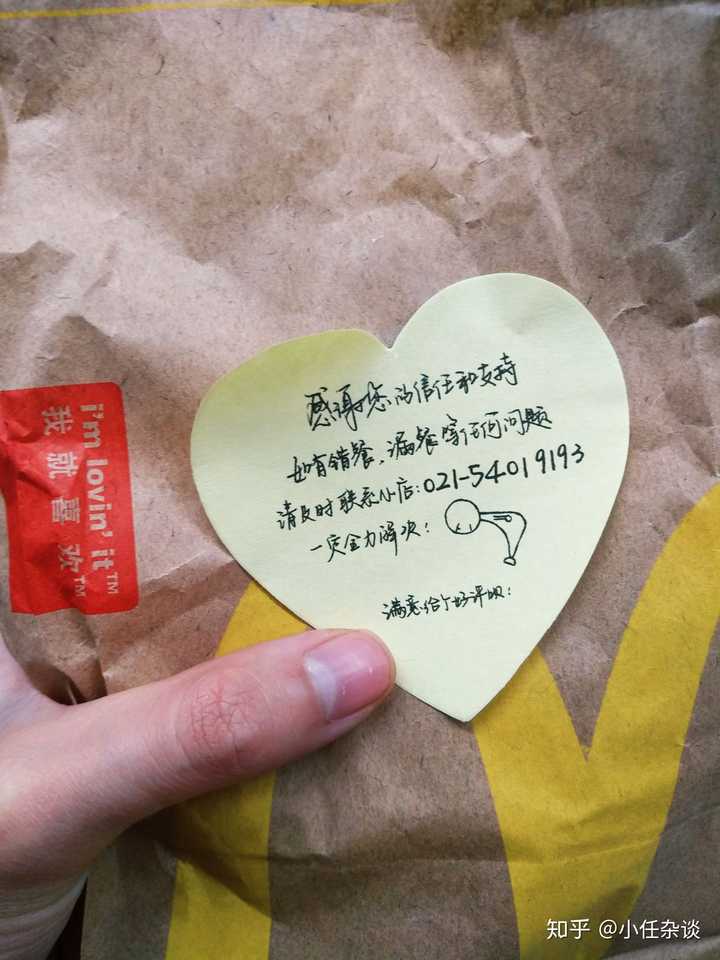 感谢您的信任和支持
如有错餐、漏餐等任何问题
请及时联系小店:021-54019193
一定全力解决!
满意给个好评呗!
i'm lovin' it™
我就喜欢™
知乎 @小任杂谈